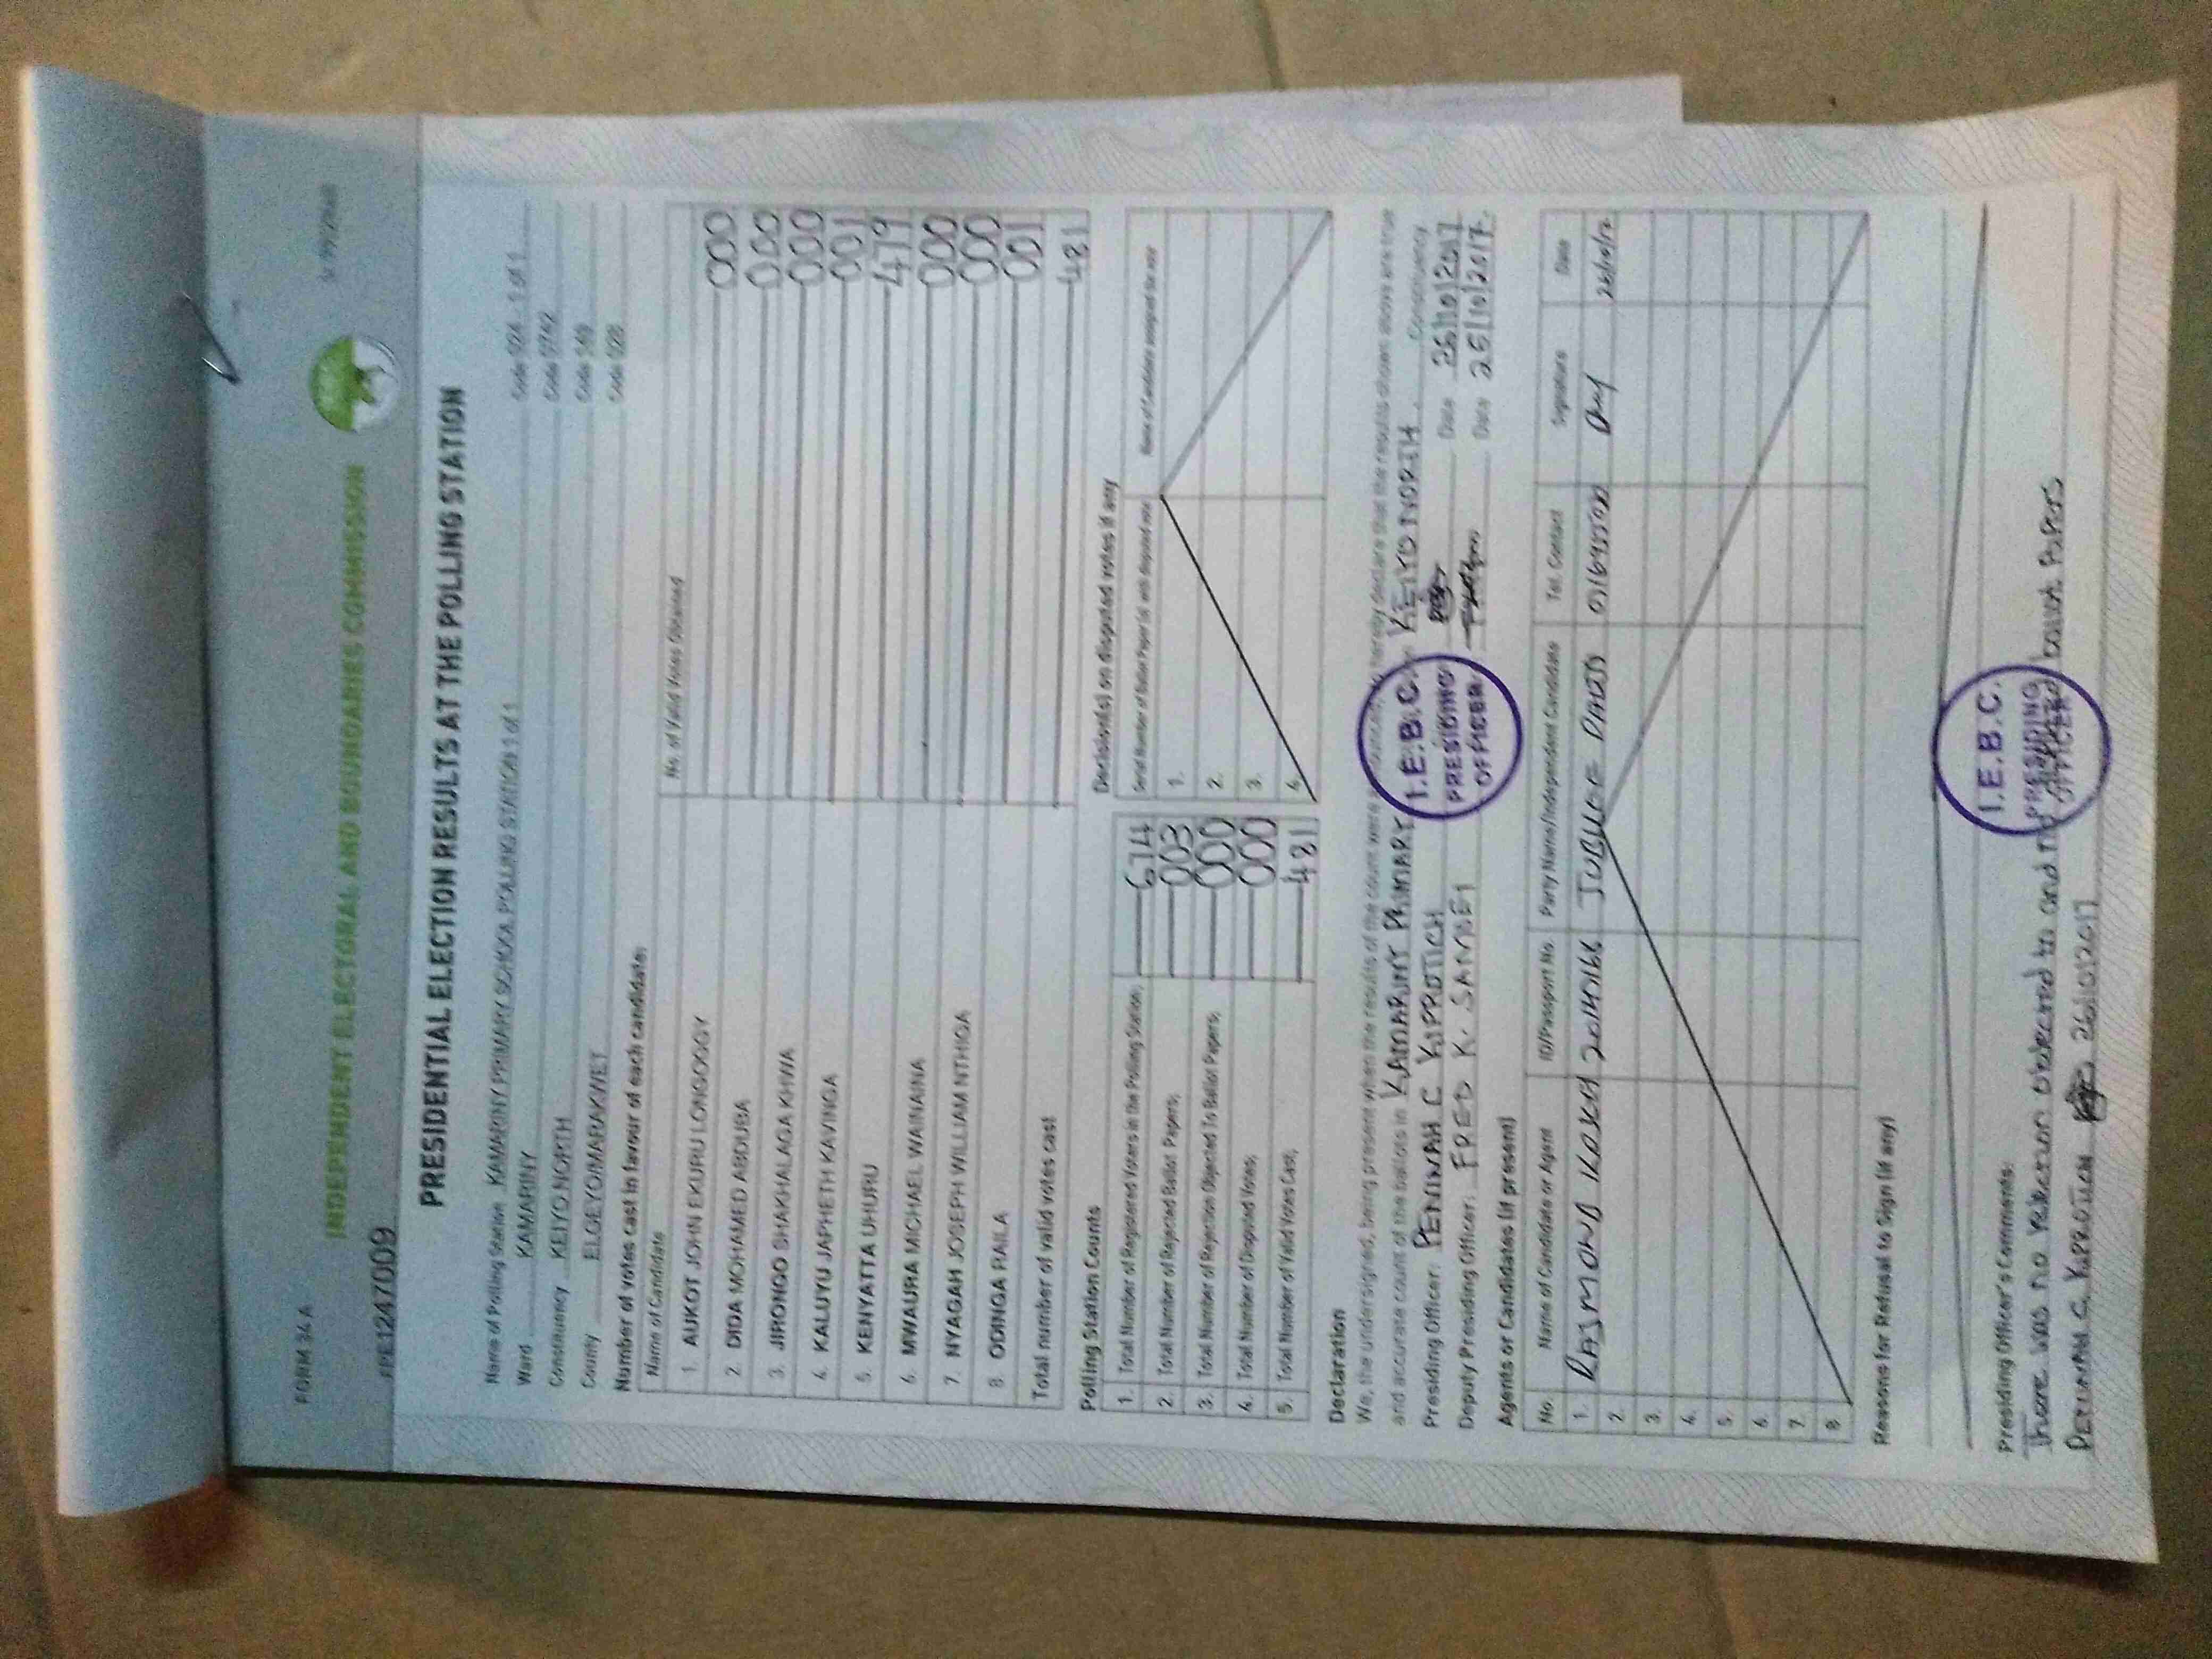 FORM 34 A
INDEPENDENT ELECTORAL AND BOUNDARIES COMMISSION
PE1247009
PRESIDENTIAL ELECTION RESULTS AT THE POLLING STATION
Name of Polling Station KAMARINY PRIMARY SCHOOL POLLING STATION 1 of 1 Code 024 - 1 of 1
Ward KAMARINY Code 0742
Constituency KEIYO NORTH Code 149
County ELGEYO/MARAKWET Code 028
Number of votes cast in favour of each candidate:
Name of Candidate No. of Valid Votes Obtained
1. AUKOT JOHN EKURU LONGOGGY 000
2. DIDA MOHAMED ABDUBA 000
3. JIRONGO SHAKHALAGA KHWA 000
4. KALUYU JAPHETH KAVINGA 001
5. KENYATTA UHURU 479
6. MWAURA MICHAEL WAINAINA 000
7. NYAGAH JOSEPH WILLIAM NTHIGA 000
8. ODINGA RAILA 001
Total number of valid votes cast 481
Polling Station Counts
1. Total Number of Registered Voters in the Polling Station; 674
2. Total Number of Rejected Ballot Papers; 003
3. Total Number of Rejection Objected To Ballot Papers; 000
4. Total Number of Disputed Votes; 000
5. Total Number of Valid Votes Cast; 481
Decision(s) on disputed votes if any
Serial Number of Ballot Paper (s) with disputed vote Name of Candidate assigned the vote
1.
2.
3.
4.
Declaration
We, the undersigned, being present when the results of the count were announced, do hereby declare that the results shown above are true
and accurate count of the ballots in KAMARINY PRIMARY KEIYO NORTH Constituency
Presiding Officer: PENINAH C KIPROTICH Date 26/10/2017
Deputy Presiding Officer: FRED K. SAMOEI Date 26/10/2017
I.E.B.C.
PRESIDING
OFFICER
Agents or Candidates (if present)
No. Name of Candidate or Agent ID/Passport No. Party Name/Independent Candidate Tel. Contact Signature Date
1. JUBILEE 26/10/17
2.
3.
4.
5.
6.
7.
8.
Reasons for Refusal to Sign (if any)
Presiding Officer's Comments:
There was no rejection objected to and no disputed ballot papers
PENINAH C. KIPROTICH 26/10/2017
I.E.B.C.
PRESIDING
OFFICER